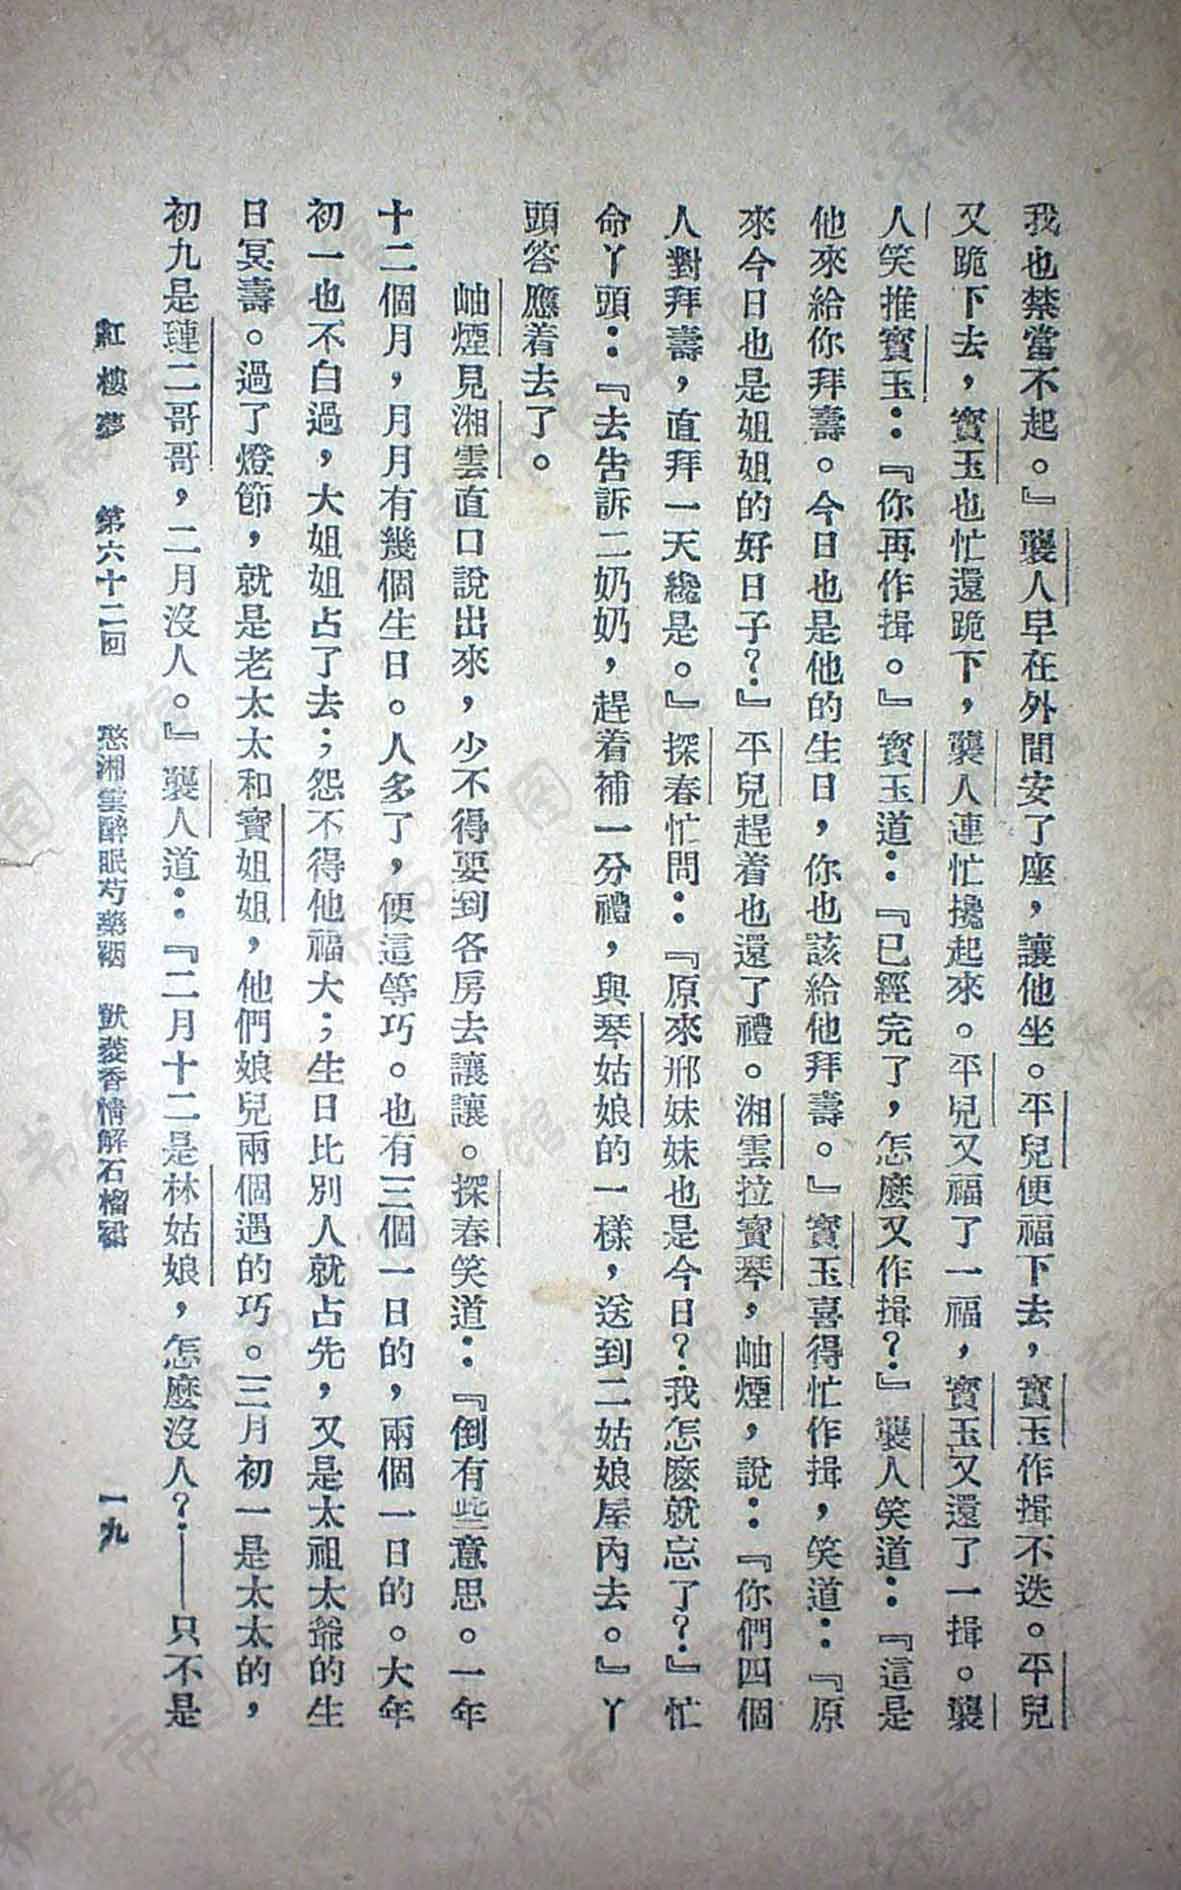 我也禁當不起。』襲人早在外間安了座，讓他坐。平兒便福下去，寶玉作揖不迭。平兒
又跪下去，寶玉也忙還跪下，襲人連忙攙起來。平兒又福了一福，寶玉又還了一揖。襲
人笑推寶玉：『你再作揖。』寶玉道：『已經完了，怎麼又作揖？』襲人笑道：『這是
他來給你拜壽。今日也是他的生日，你也該給他拜壽。』寶玉喜得忙作揖，笑道：『原
來今日也是姐姐的好日子？』平兒趕着也還了禮。湘雲拉寶琴，岫煙，說：『你們四個
人對拜壽，直拜一天纔是。』探春忙問：『原來邢妹妹也是今日？我怎麼就忘了？』忙
命丫頭：『去告訴二奶奶，趕着補一分禮，與琴姑娘的一樣，送到二姑娘屋內去。』丫
頭答應着去了。
岫煙見湘雲直口說出來，少不得要到各房去讓讓。探春笑道：『倒有些意思。一年
十二個月，月月有幾個生日。人多了，便這等巧。也有三個一日的，兩個一日的。大年
初一也不白過，大姐姐占了去；怨不得他福大；生日比別人就占先，又是太祖太爺的生
日冥壽。過了燈節，就是老太太和寶姐姐，他們娘兒兩個遇的巧。三月初一是太太的，
初九是璉二哥哥，二月沒人。』襲人道：『二月十二是林姑娘，怎麼沒人？——只不是
紅樓夢　第六十二回　憨湘雲醉眠芍藥裀　獃香菱情解石榴裙　一九
济南市图书馆